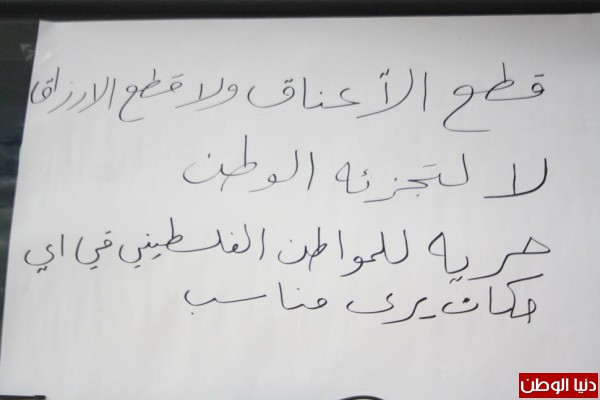 قطع الأعناق ولا قطع الارزاق
لا لتجزئه الوطن
حريه للمواطن الفلسطيني في اي
مكان يرى مناسب
دنيا الوطن